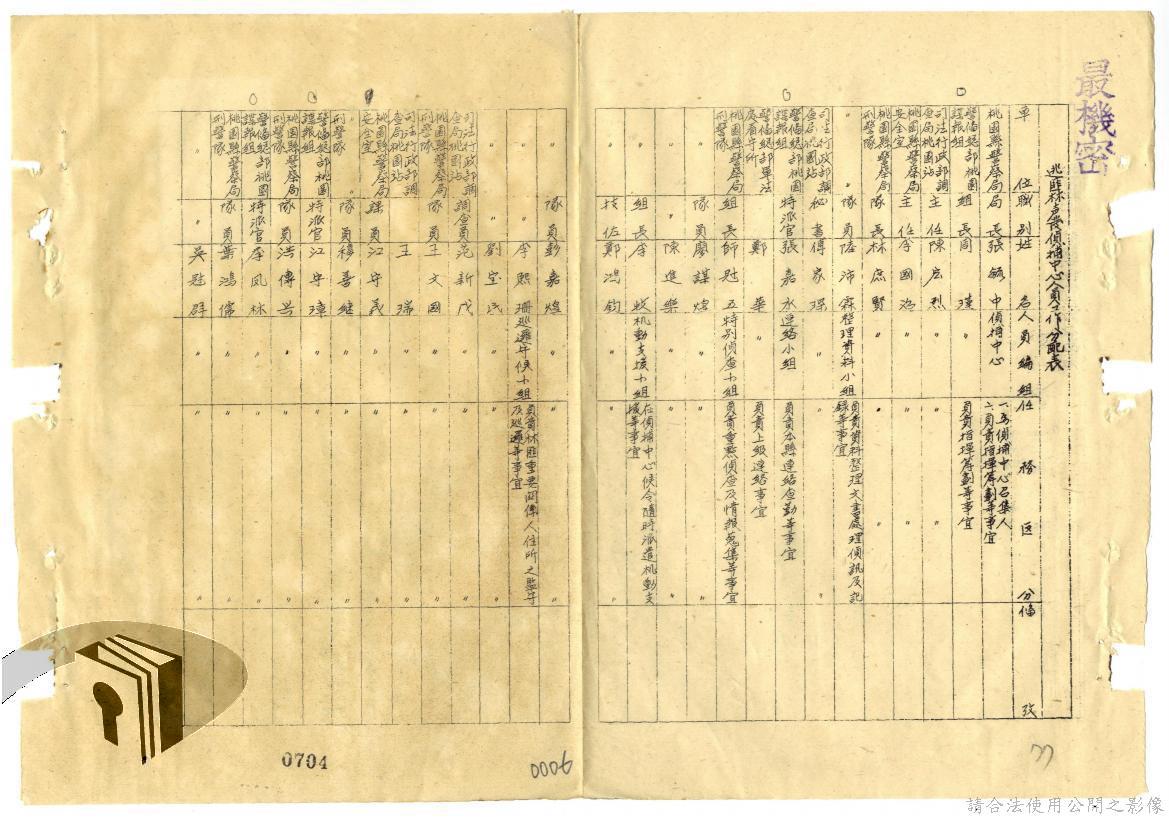 最機密
逃匪林元枝偵捕中心人員工作分配表
單位 職別 姓名 人員編組 任務區分 備攷
桃園縣警察局 局長 張毓中 偵捕中心 一、為偵捕中心召集人 二、負責指揮籌劃等事宜
警備總部桃園諜報組 組長 周 負責指揮籌劃等事宜
司法行政部調查局桃園站 主任 陳庶烈 〃 〃
桃園縣警察局安全室 主任 李國 〃 〃
桃園縣警察局刑警隊 隊長 林庶賢 〃 〃
〃 隊員 陸沛霖 整理資料小組 負責資料整理文書處理偵訊及記錄等事宜
司法行政部調查局桃園站 秘書 傅家 〃 〃
警備總部桃園諜報組 特派官 張嘉水 連絡小組 負責本縣連絡查勤等事宜
警備總部軍法處看守所 鄭華 〃 負責上級連絡事宜
桃園縣警察局刑警隊 組長 師冠五 特別偵查小組 負責重點偵查及情報蒐集等事宜
〃 隊員 廖謀煌 〃 〃
〃 〃 陳進樂 〃 〃
〃 組長 李牧 机動支援小組 在偵捕中心候令隨時派遣机動支援等事宜
〃 技佐 鄭鴻鈞 〃 〃
〃 隊員 彭嘉煌 〃 〃
〃 〃 李熙珊 巡邏守候小組 負責林匪重要關係人住所之監守及巡邏等事宜
〃 〃 劉宝 〃 〃
司法行政部調查局桃園站 調查員 范新茂 〃 〃
桃園縣警察局刑警隊 隊員 王文國 〃 〃
司法行政部調查局桃園站 王瑞 〃 〃
桃園縣警察局安全室 課員 江守義 〃 〃
〃 刑警隊 隊員 穆善継 〃 〃
警備總部桃園諜報組 特派官 江守璋 〃 〃
桃園縣警察局刑警隊 隊員 洪傳 〃 〃
警備總部桃園諜報組 特派官 李凤林 〃 〃
桃園縣警察局刑警隊 隊員 葉鴻儒 〃 〃
〃 〃 吳冠群 〃 〃
77
0006
0704
請合法使用公開之影像